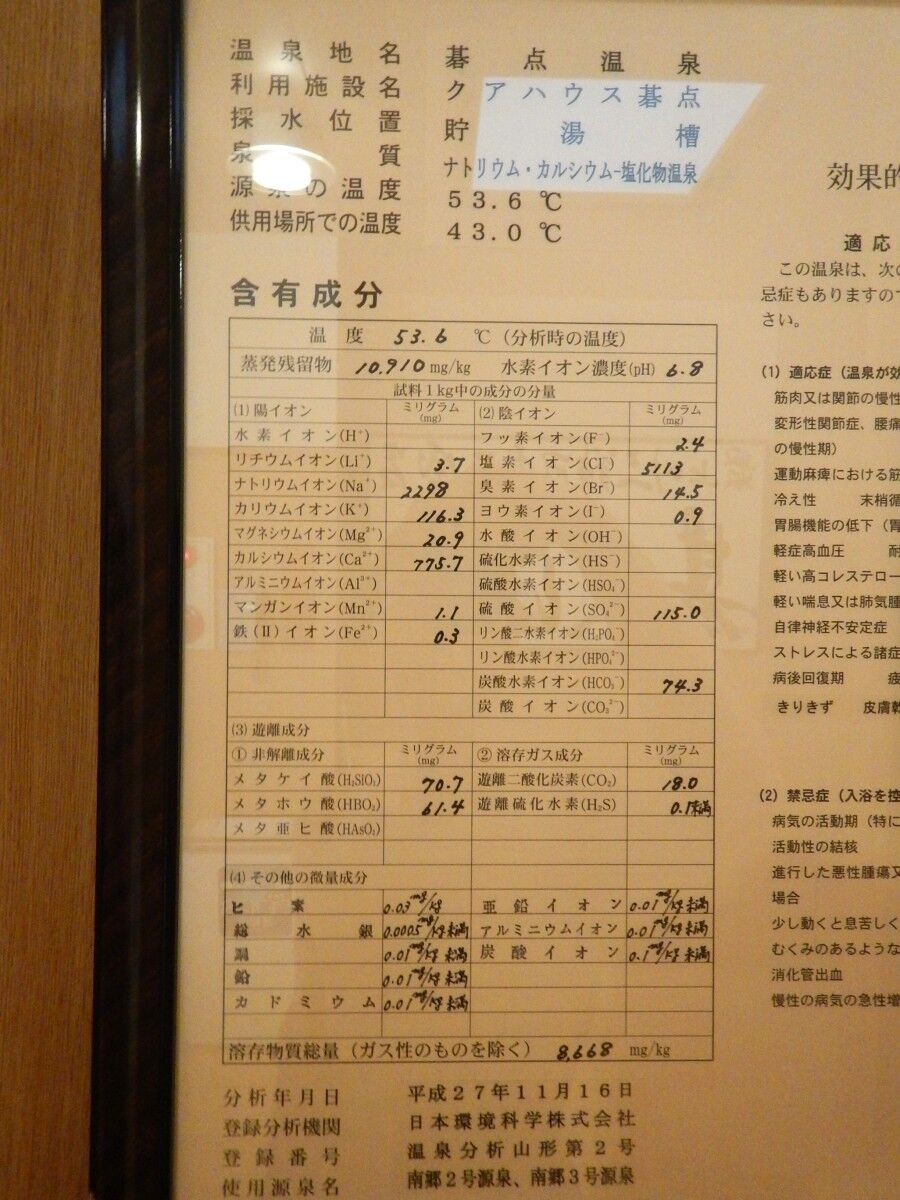 温泉地名 碁点温泉
利用施設名 クアハウス碁点
採水位置 貯湯槽
泉質 ナトリウム・カルシウム-塩化物温泉
源泉の温度 53.6℃
供用場所での温度 43.0℃
含有成分
温度 53.6 ℃ (分析時の温度)
蒸発残留物 10,910 mg/kg 水素イオン濃度(pH) 6.8
試料1kg中の成分の分量
(1) 陽イオン ミリグラム(mg) (2) 陰イオン ミリグラム(mg)
水素イオン(H⁺) フッ素イオン(F⁻) 2.4
リチウムイオン(Li⁺) 3.7 塩素イオン(Cl⁻) 5113
ナトリウムイオン(Na⁺) 2298 臭素イオン(Br⁻) 14.5
カリウムイオン(K⁺) 116.3 ヨウ素イオン(I⁻) 0.9
マグネシウムイオン(Mg²⁺) 20.9 水酸イオン(OH⁻)
カルシウムイオン(Ca²⁺) 775.7 硫化水素イオン(HS⁻)
アルミニウムイオン(Al³⁺) 硫酸水素イオン(HSO₄⁻)
マンガンイオン(Mn²⁺) 1.1 硫酸イオン(SO₄²⁻) 115.0
鉄(II)イオン(Fe²⁺) 0.3 リン酸二水素イオン(H₂PO₄⁻)
リン酸水素イオン(HPO₄²⁻)
炭酸水素イオン(HCO₃⁻) 74.3
炭酸イオン(CO₃²⁻)
(3) 遊離成分
① 非解離成分 ミリグラム(mg) ② 溶存ガス成分 ミリグラム(mg)
メタケイ酸(H₂SiO₃) 70.7 遊離二酸化炭素(CO₂) 18.0
メタホウ酸(HBO₂) 61.4 遊離硫化水素(H₂S) 0.1未満
メタ亜ヒ酸(HAsO₂)
(4) その他の微量成分
ヒ素 0.03mg/kg 亜鉛イオン 0.01mg/kg未満
総水銀 0.0005mg/kg未満 アルミニウムイオン 0.01mg/kg未満
銅 0.01mg/kg未満 炭酸イオン 0.1mg/kg未満
鉛 0.01mg/kg未満
カドミウム 0.01mg/kg未満
溶存物質総量(ガス性のものを除く) 8,668 mg/kg
分析年月日 平成27年11月16日
登録分析機関 日本環境科学株式会社
登録番号 温泉分析山形第2号
使用源泉名 南郷2号源泉、南郷3号源泉
効果的
適応
この温泉は、次の
忌症もありますので
さい。
(1) 適応症(温泉が効
筋肉又は関節の慢性
変形性関節症、腰痛
の慢性期)
運動麻痺における筋
冷え性 末梢循
胃腸機能の低下(胃
軽症高血圧 耐
軽い高コレステロー
軽い喘息又は肺気腫
自律神経不安定症
ストレスによる諸症
病後回復期 疲
きりきず 皮膚乾
(2) 禁忌症(入浴を控
病気の活動期(特に
活動性の結核
進行した悪性腫瘍又
場合
少し動くと息苦しく
むくみのあるような
消化管出血
慢性の病気の急性増